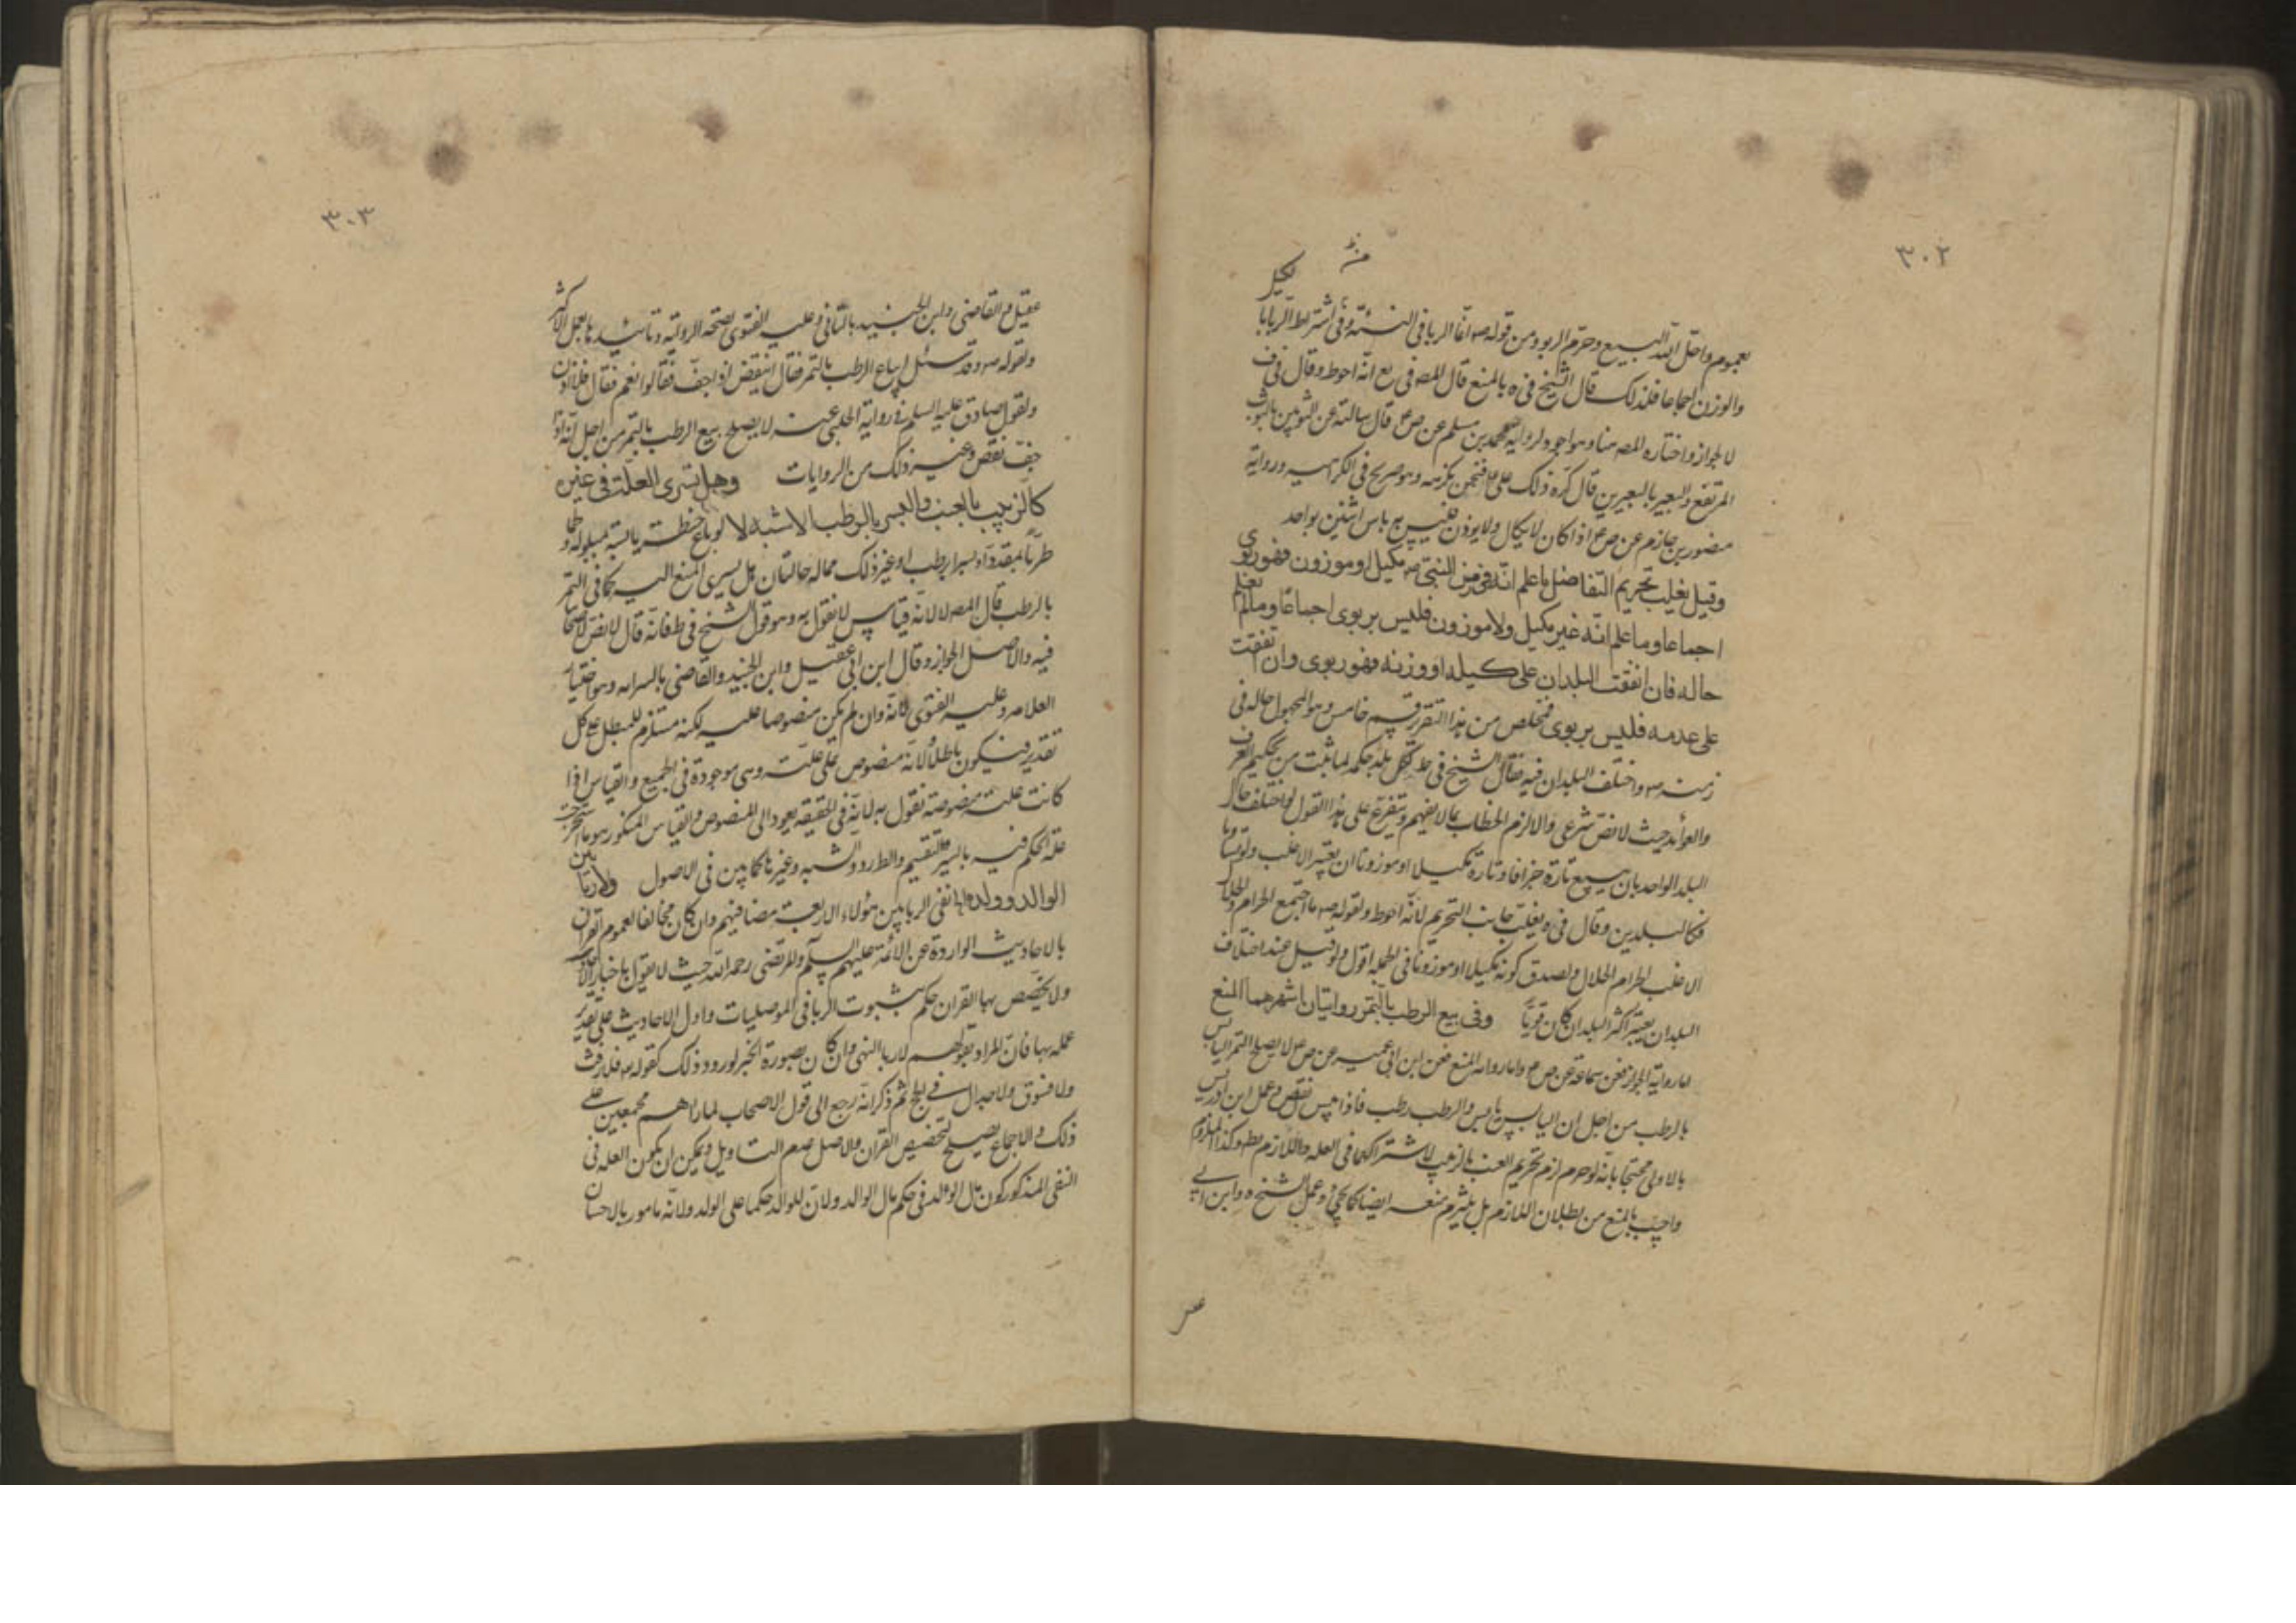 ٣٠٢
لعموم واحل الله البيع وحرم الربو ومن قوله ص انما الربا فى النسئة وفى اشتراط الربا بالكيل
والوزن اجماعا فلذلك قال الشيخ فى ه بالمنع قال المصـ فى يع انه احوط وقال فى ف
لا لجواز واختاره المصـ هنا وهو اجود لرواية محمد بن مسلم عن ص ع قال سالته عن الثوبين بالثوب
المرتفع والبعير بالبعيرين قال كره ذلك على ع فنحن نكرهه وهو صريح فى الكراهية ورواية
منصور بن حازم عن ص ع اذا كان لا يكال ولا يوزن فليس به باس اثنين بواحد
وقيل يغلب تحريم التفاضل ما علم انه فى زمن النبى ص مكيل او موزون فهو ربوى
اجماعا وما علم انه غير مكيل ولا موزون فليس بربوى اجماعا وما لم يعلم
حاله فان اتفقت البلدان على كيله او وزنه فهو ربوى وان اتفقت
على عدمه فليس بربوى فتخلص من هذا التقرير قسم خامس وهو المجهول حاله فى
زمنه ص واختلف البلدان فيه فقال الشيخ فى ط لكل بلد حكمه لما ثبت من تحكيم العرف
والعوائد حيث لا نص شرعى والا لزم الخطاب بما لا يفهم ويتفرع على هذا القول لو اختلف حال
البلد الواحد بان يبيع تارة جزافا وتارة مكيلا او موزونا ان يعتبر الاغلب ولو تساويا
فكالبلدين وقال فى ه يغلب جانب التحريم لانه احوط ولقوله ص ما اجتمع الحرام والحلال
الا غلب الحرام الحلال ولصدق كونه مكيلا او موزونا فى الجملة اقول ولو قيل عند اختلاف
البلدان يعتبر اكثر البلدان كان قويا وفى بيع الرطب بالتمر روايتان اشهرهما المنع
اما رواية الجواز فعن سماعة عن ص ع واما رواية المنع فعن ابن ابى عمير عن ص ع لا يصلح التمر اليابس
بالرطب من اجل ان اليابس يابس والرطب رطب فاذا يبس نقص وعمل ابن ادريس
بالاولى محتجا بانه لو حرم لزم تحريم العنب بالزبيب لاشتراكهما فى العله واللازم بط وكذا الملزوم
واجيب بالمنع من بطلان اللازم بل يلتزم منعه ايضا كما يجئ وعمل الشيخ ه وابن ابى
٣٠٣
عقيل والقاضى وابن الجنيد بالثانى وعليه الفتوى لصحة الرواية وتاييدها بعمل الاكثر
ولقوله ص وقد سئل ايباع الرطب بالتمر فقال اينقص اذا جف فقالوا نعم فقال فلا اذن
ولقول صادق عليه السلم فى رواية الحلبى عنه لا يصلح بيع الرطب بالتمر من اجل انه اذا
جف نقص وغير ذلك من الروايات وهل تسرى العلة فى غيره
كالزبيب بالعنب والبسر بالرطب الاشبه لا لو باع حنطة يابسة بمبلولة ولحما
طريا بمقدد او بسرا برطب او غير ذلك مما له حالتان هل يسرى المنع اليه كما فى التمر
بالرطب قال المصـ لا لانه قياس لا نقول به وهو قول الشيخ فى ط فانه قال لا نص لاصحابنا
فيه والاصل الجواز وقال ابن ابى عقيل وابن الجنيد والقاضى بالسرايه وهو اختيار
العلامه وعليه الفتوى لانه وان لم يكن منصوصا عليه لكنه مستلزم للمبطل على كل
تقدير فيكون باطلا ولانه منصوص على علته وهى موجودة فى الجميع والقياس اذا
كانت علته منصوصة نقول به لانه فى الحقيقة يعود الى المنصوص والقياس المنكور هو ما استخرجت
علة الحكم فيه بالسبر والتقسيم والطرد والشبه وغيرها كما بين فى الاصول ولا ربا بين
الوالد وولده انما نفى الربا بين هؤلاء الاربعة مضافيهم وان كان مخالفا لعموم القران
بالاحاديث الواردة عن الائمة عليهم السلم والمرتضى رحمه الله حيث لا يقول باخبار الآحاد
ولا يخصص بها القران حكم بثبوت الربا فى الموصليات واول الاحاديث على تقدير
عمله بها فان المراد بقولهم لا ربا النهى وان كان بصورة الخبر لورود ذلك كقوله تع فلا رفث
ولا فسوق ولا جدال فى الحج ثم ذكر انه رجع الى قول الاصحاب لما راهم مجمعين على
ذلك والاجماع يصلح لتخصيص القران والاصل عدم التاويل ويمكن ان يكون العله فى
النفى المذكور كون مال الولد فى حكم مال الوالد ولان للوالد حكما على الولد ولانه مامور بالاحسان